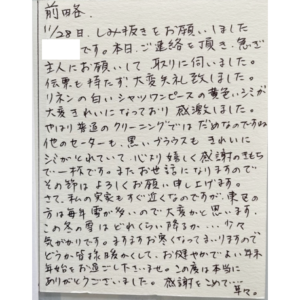 前略.
11/28日、しみ抜きをお願いしました
です。本日、ご連絡を頂き、急ぎ
主人にお願いして 取りに伺いました。
伝票も持たず、大変失礼致しました。
リネンの白いシャツワンピースの黄色いシミが
大変きれいになっており 感激しました。
やはり普通のクリーニングではだめなのですね
他のセーターも、黒いブラウスも きれいに
シミがとれていて、心より嬉しく感謝のきもち
で一杯です。またお世話になりますので
その節は よろしくお願い申し上げます。
さて、私の実家もすぐ近くなのですが、東込の
方は毎年雪が多いので大変かと思います。
この冬の雪は どれくらい降るか… 少々
気がかりです。ますますお寒くなってまいりますので
どうか皆様 暖かくして、お健やかでよい年末
年始をお過ごし下さいませ。この度は本当に
ありがとうございました。 感謝をこめて…
草々。